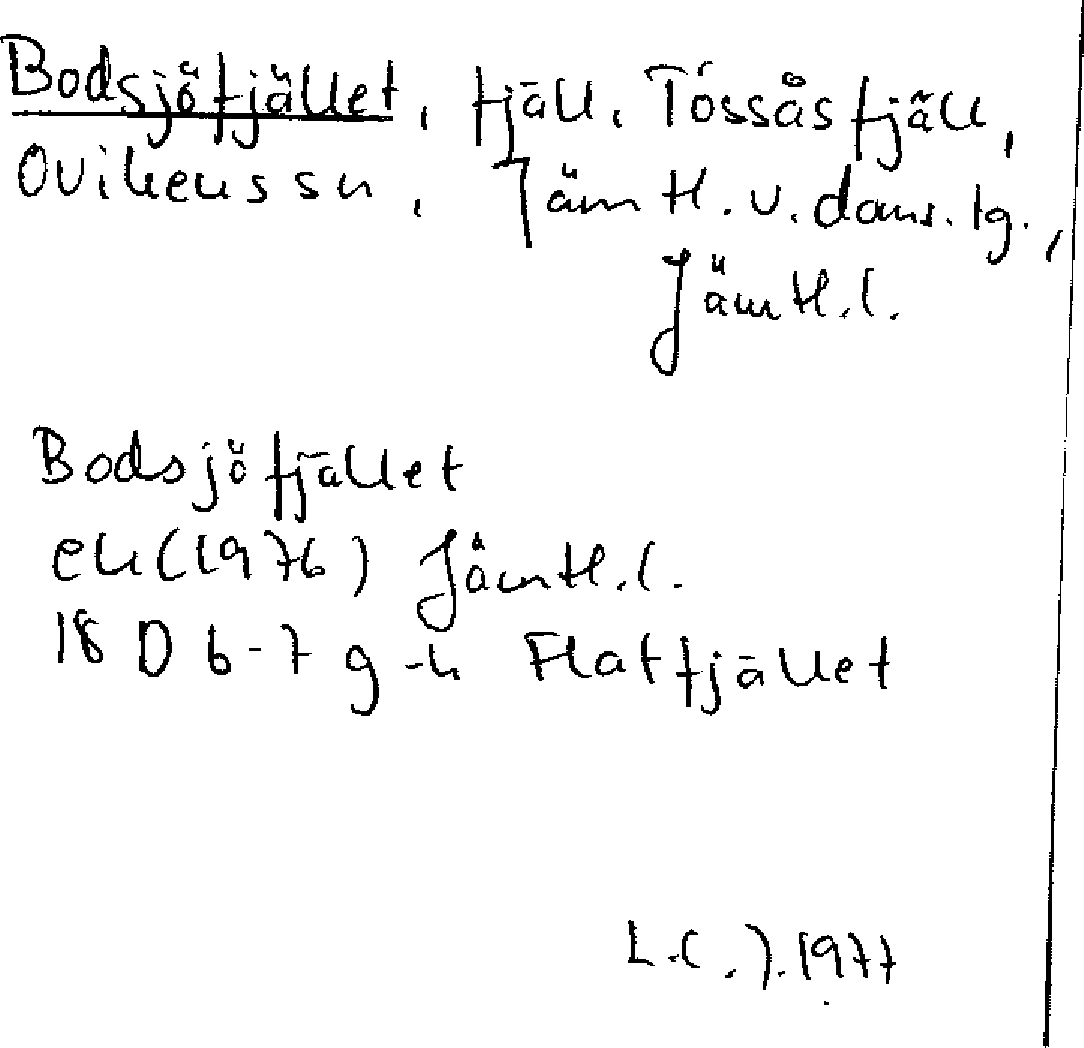 Bodsjöfjället, fjäll, Tossåsfjäll,
Ovikens sn, Jämtl. v. doms. tg.,
Jämtl. l.
Bodsjöfjället
ek (1976) Jämtl. l.
18 D 6-7 g-h Flatfjället
L.C.J. 1977